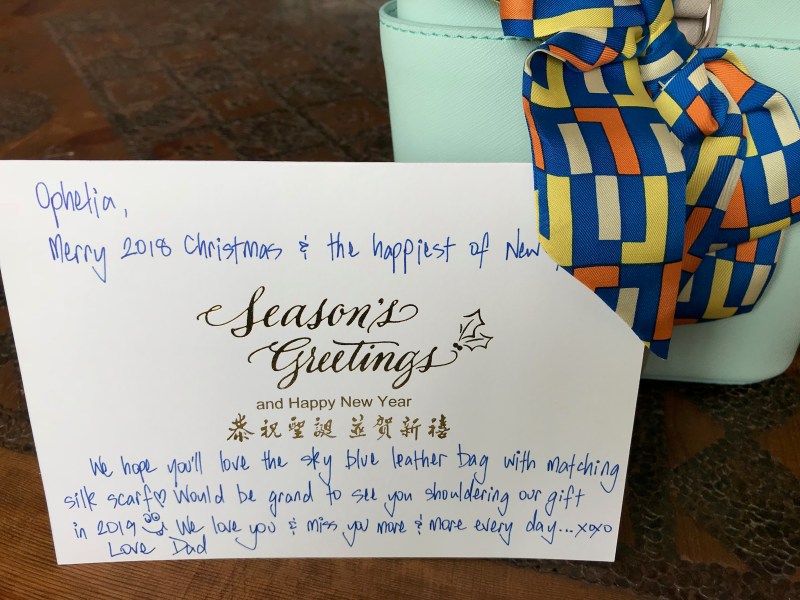 Ophelia,
Merry 2018 Christmas & the happiest of New
Season's
Greetings
and Happy New Year
恭祝聖誕並賀新禧
We hope you'll love the sky blue leather bag with matching
silk scarf♡ Would be grand to see you shouldering our gift
in 2019 We love you & miss you more & more every day... xoxo
Love Dad